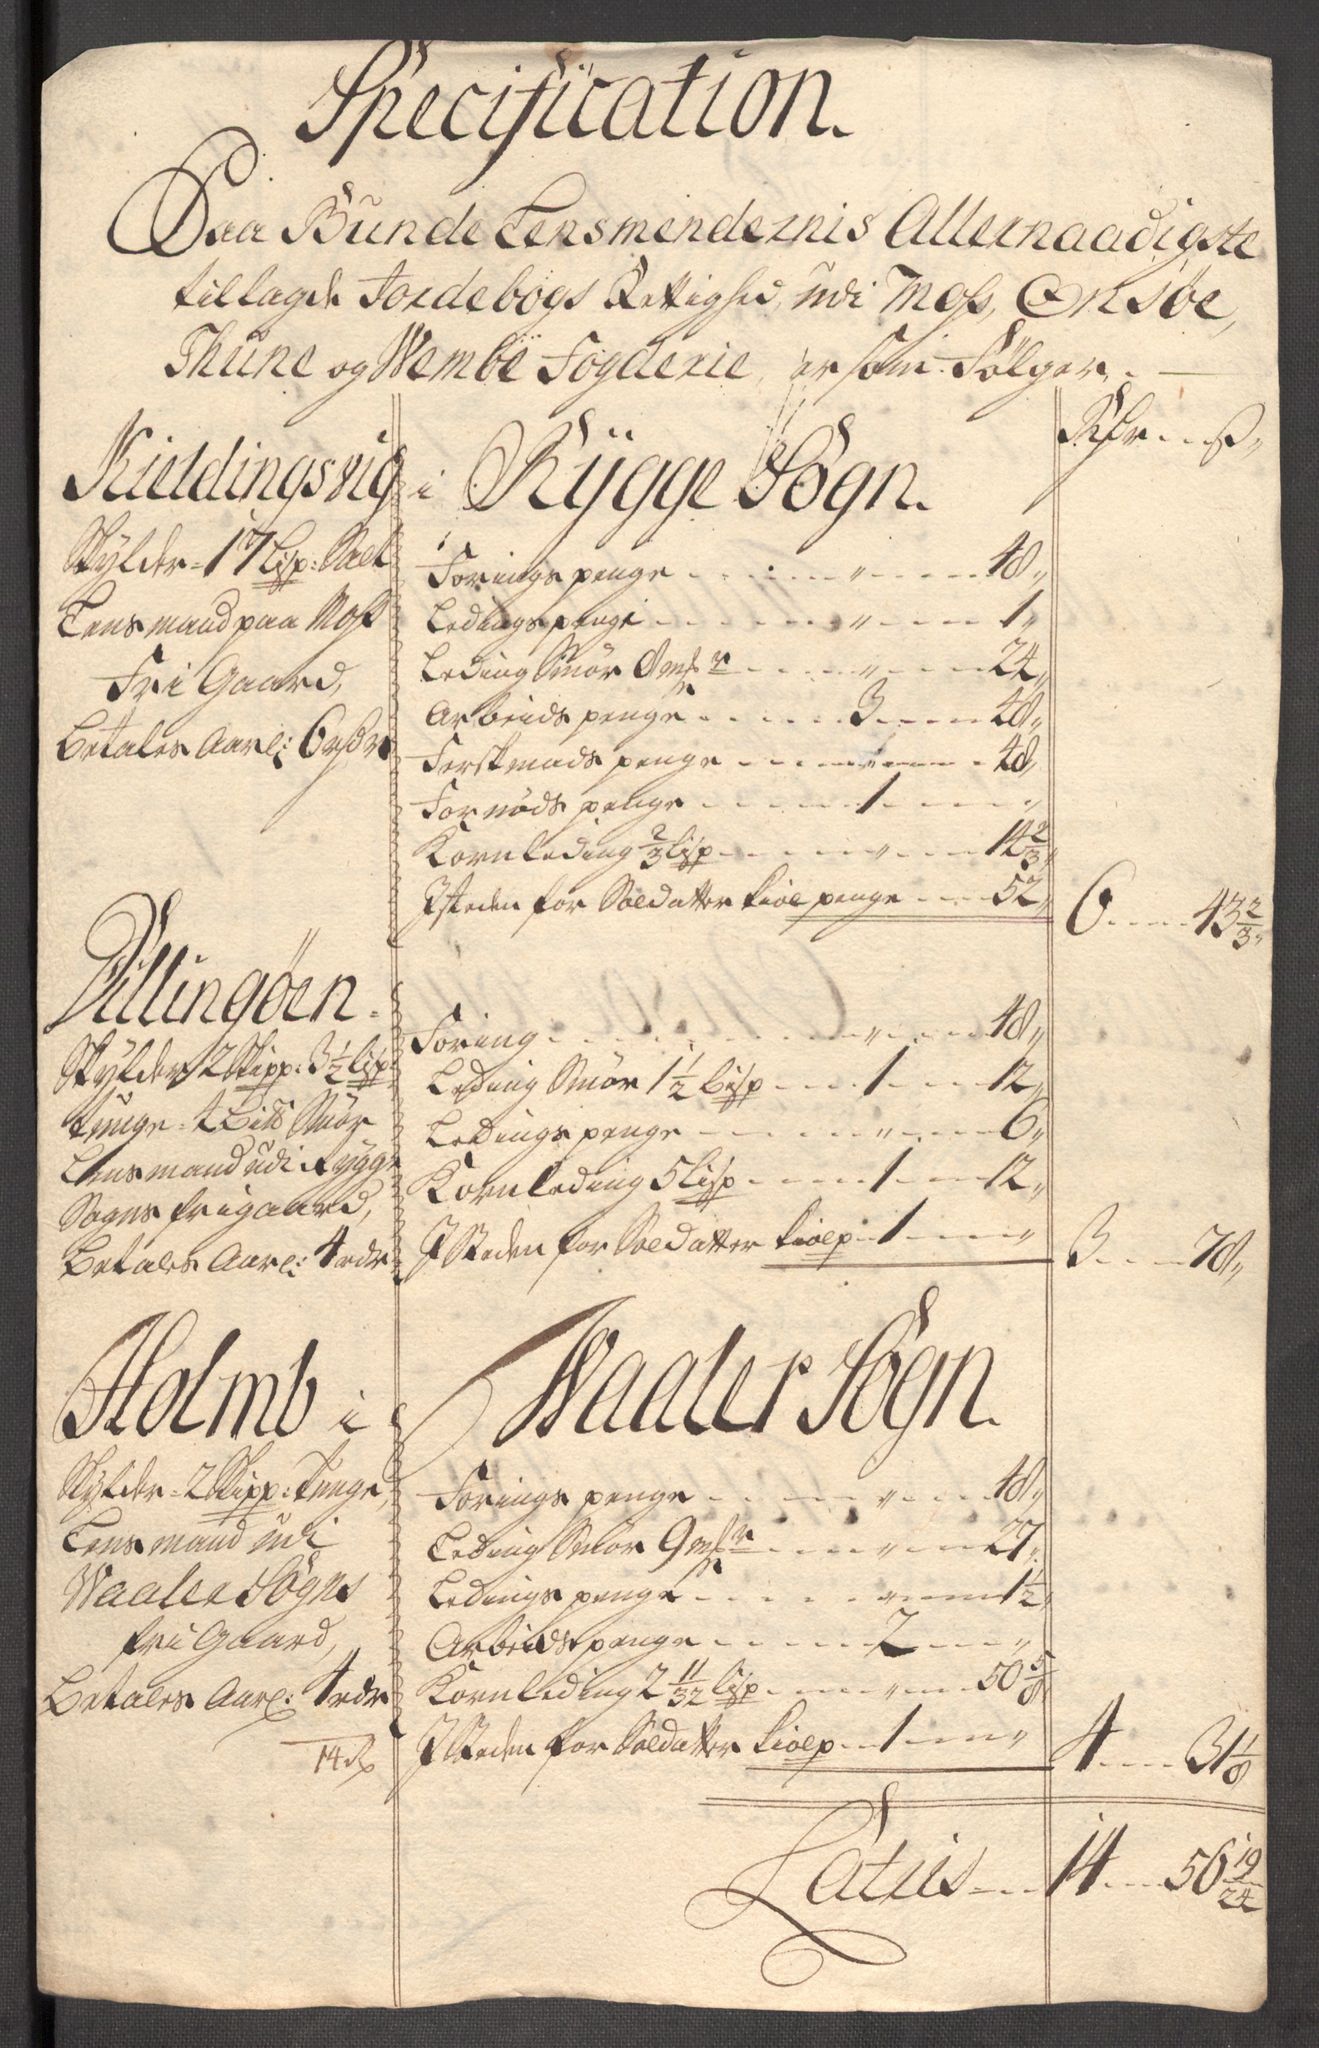 Specification.
Paa Bunde Lensmendernis Allernaadigste
tillagde Jordebogs Rettighed, udi Moss, Onsøe,
Thune og Wembe Fogderie, er som Følger. —
Rdr ß
Kieldingsvig i Rÿgge Sogn.
Skylder 17 Lisp: Salt
Lensmand paa Moss
Fri Gaard,
Betales Aarl: 6 rdr
Foringspenge 48
Ledingspenge 1
Leding Smør 8 mkr 24
Arbeidspenge 3 48
Ferskmadspenge 48
Fornødspenge 1
Kornleding 2/3 lisp 14 2/3
Isteden for Soldatter kiolpenge 52 6 43 2/3
Dillingøen.
Skylder 2 Skipp: 3 1/2 lisp
tunge 4 Bits Smør
Lensmand udi Rygge
Sogns frigaard,
Betales Aarl: 4 rdr
Foring 48
Leding Smør 1 1/2 Bisp 1 12
Ledingspenge 6
Kornleding 5 lisp 1 12
Isteden for Soldatter kiolp 1 3 78
Holmb i Waaler Sogn.
Skylder 2 Skipp: tunge,
Lensmand udi
Waaler Sogns
fri Gaard,
Betales Aarl: 4 rdr
14 R
Foringspenge 48
Leding Smør 9 mkr 27
Ledingspenge 1 1/2
Arbeidspenge 2
Kornleding 2 11/32 lisp 50 5/8
Isteden for Soldatter kiolp 1 4 31 1/8
Latus 14 56 19/24